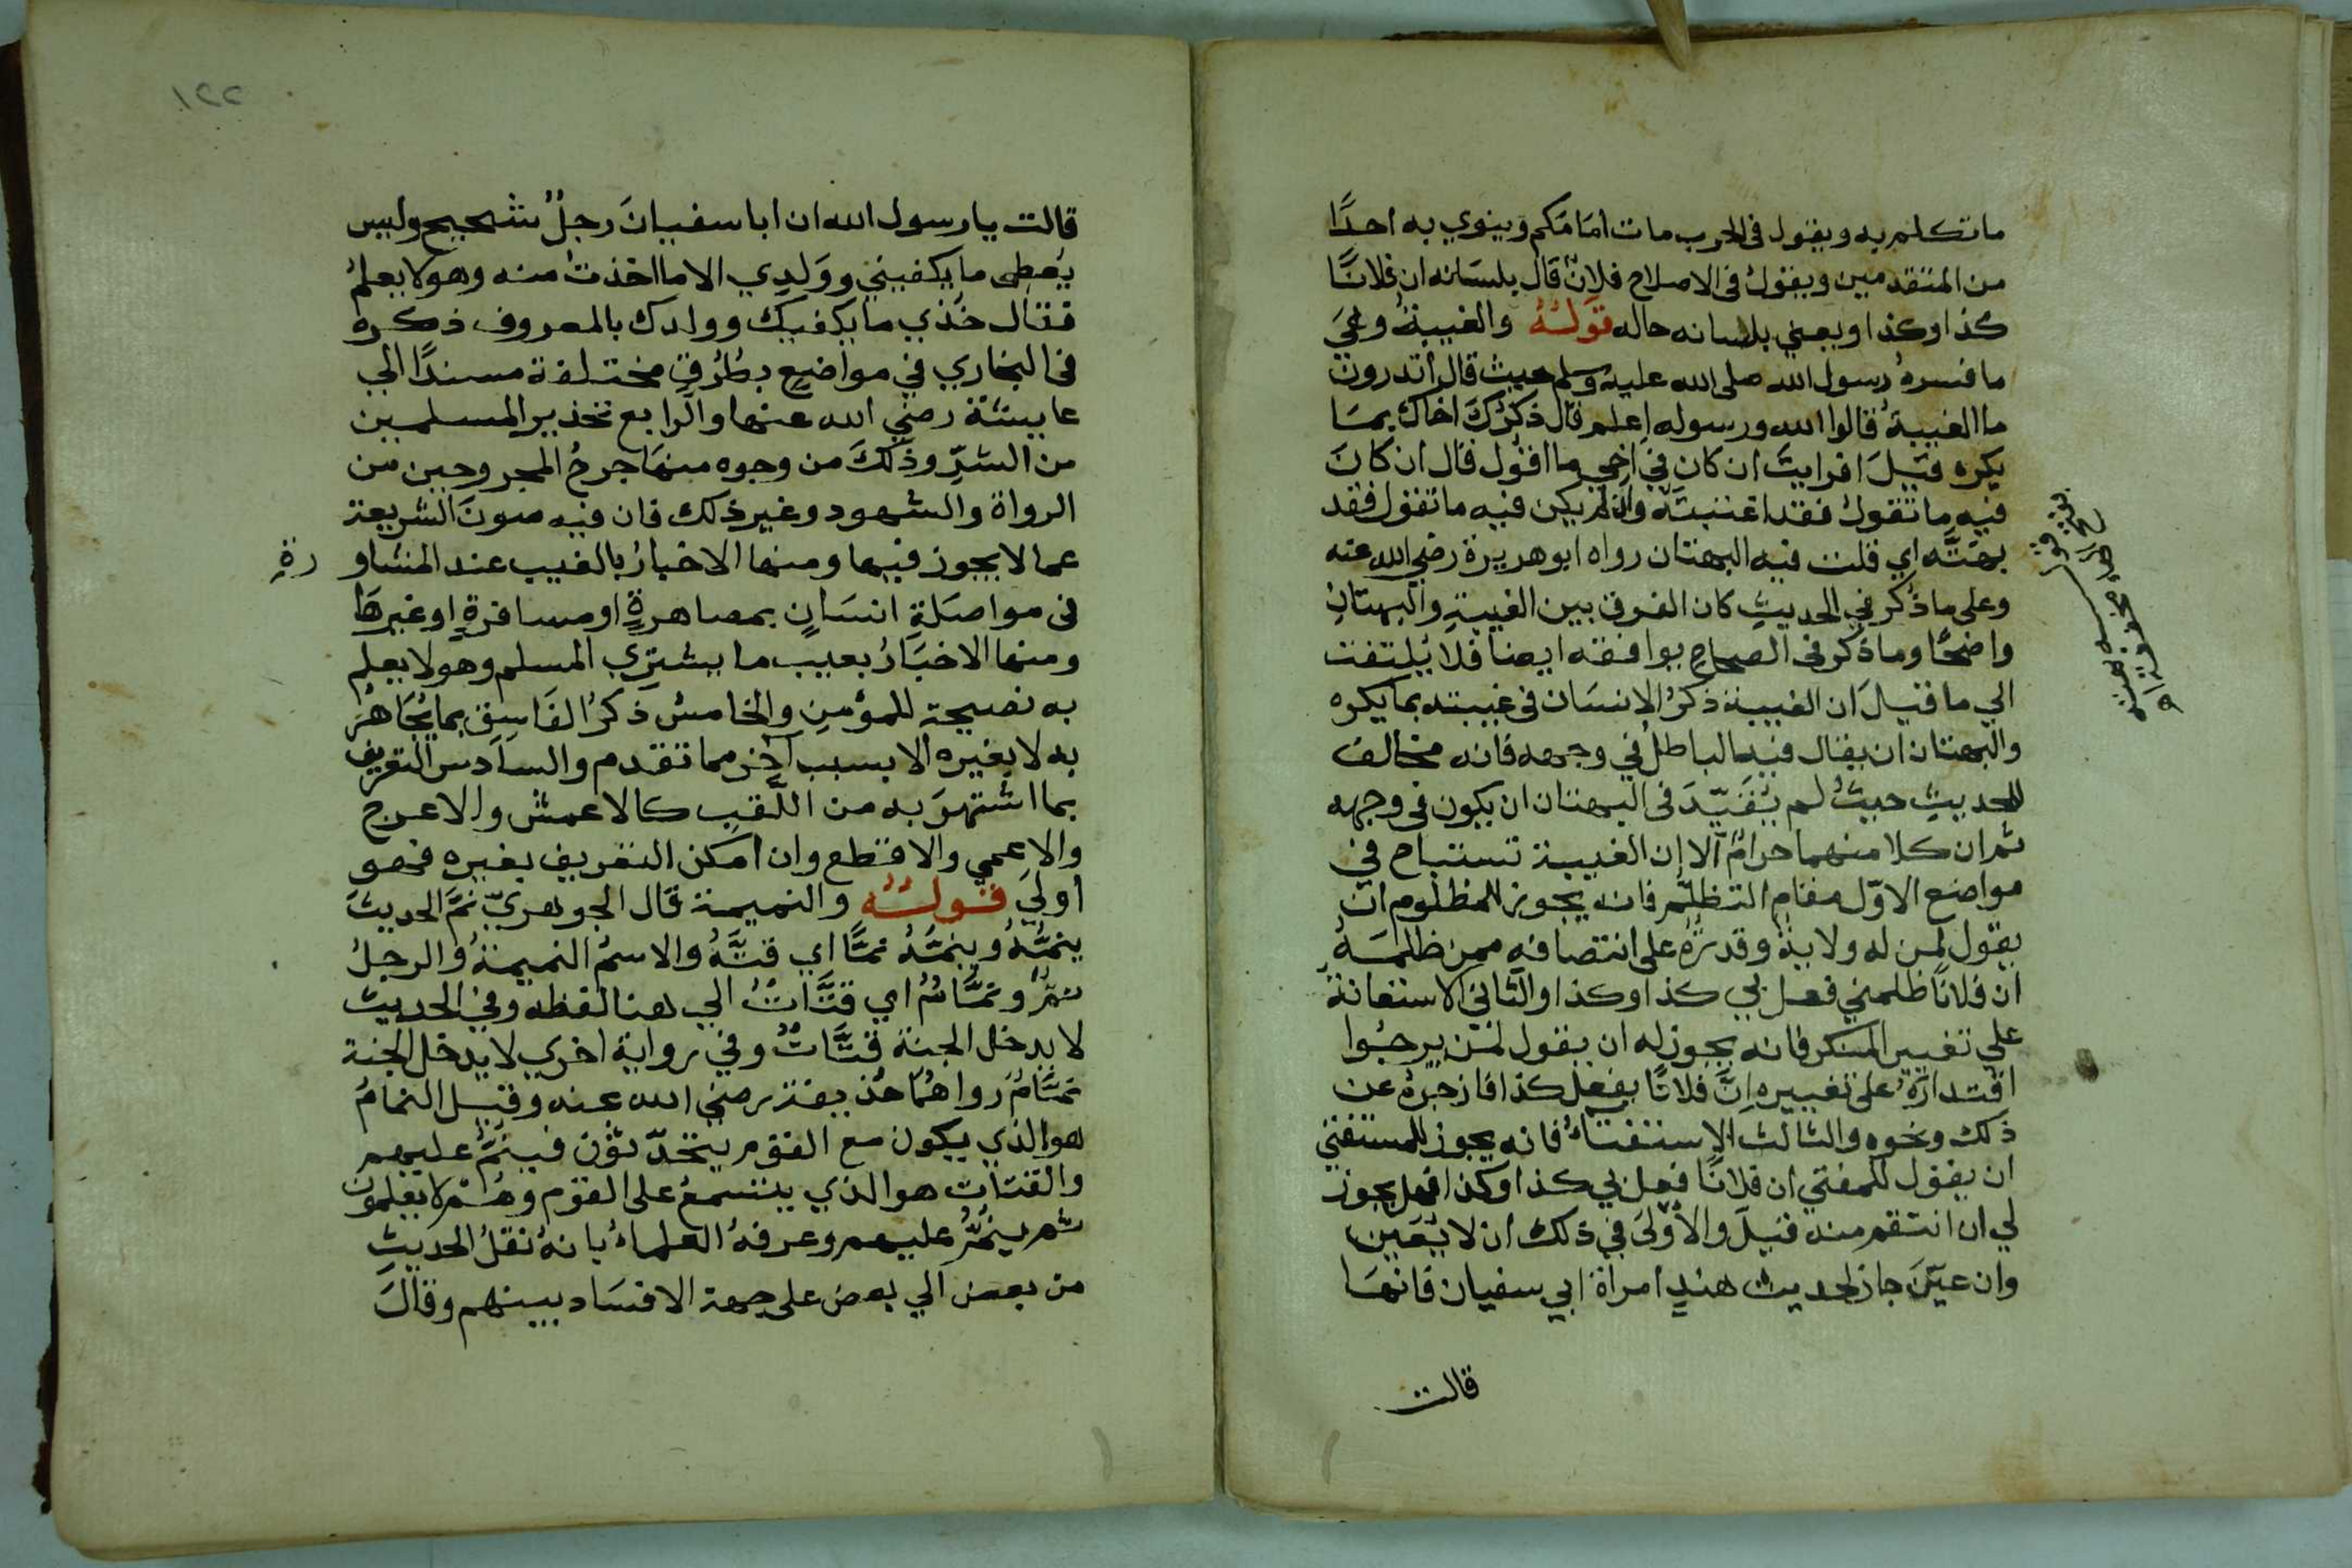 ما تكلم به ويقول في الحرب مات امَامَكم وينوي به احدًا
من المتقدمين ويقولُ في الاصلاح فلانٌ قال بلسَانه ان فلانًا
كذا وكذا ويعني بلسانه حاله قولُهُ والغيبةُ وهيَ
ما فسرهُ رسول الله صلى الله عليه وسلم حيث قال اتدرون
ما الغيبةُ قالوا الله ورسوله اعلم قال ذكرُكَ اخاك بمَا
يكره قيلَ افرايتَ ان كان في اخي ما اقول قال ان كانَ
فيه ما تقولُ فقد اغتبتَه وان لم يكن فيه ما تقول فقد
بهتَّه اي قلت فيه البهتان رواه ابو هريرة رضي الله عنه
وعلى ما ذُكر في الحديثِ كان الفرق بين الغيبةِ والبهتانِ
واضحًا وما ذكر في الصحاحِ يوافقه ايضا فلا يُلتفت
الي ما قيلَ ان الغيبة ذكرُ الانسَان في غيبته بما يكره
والبهتان ان يقال فيه الباطلُ في وجهه فانه مخالف
للحديثِ حيثُ لم يُقَيّدَ في البهتان ان يكون في وجهه
ثم ان كلا منهما حرامٌ الا ان الغيبة تستباح في
مواضع الاوّل مقام التظلّم فانه يجوز للمظلوم ان
يقول لمن له ولايةٌ وقدرةٌ على انتصافه ممن ظلمَهُ
ان فلانًا ظلمني فعل بي كذا وكذا والثاني الاستعانة
علي تغيير المنكر فانه يجوز له ان يقول لمن يرجُوا
اقتدارَهُ على تغييره اِنَّ فلانًا يفعل كذا فازجُرهُ عن
ذلك ونحوه والثالث الاستفتاءُ فانه يجوز للمستفتي
ان يقول للمفتي ان فلانًا فعل بي كذا وكذا فهل يجوز
لي ان انتقم منه قيلَ والأولى في ذلك ان لا يُعَين
وان عيّنَ جاز لحديث هندٍ امراة ابي سفيان فانهَا
قالت
١٢٢
قالت يا رسول الله ان ابا سفيانَ رجلٌ شحيح وليس
يُعطي ما يكفيني ووَلدِي الا ما اخذتُ منه وهو لا يعلمُ
فقال خُذي ما يكفيك وولدك بالمعروف ذكره
في البخاري في مواضعٍ بطُرُقٍ مختلفة مسندًا الي
عايشة رضي الله عنها والرابع تحذير المسلمين
من الشرِّ وذلكَ من وجوه منهَا جرحُ المجروحين من
الرواة والشهود وغير ذلك فان فيه صونَ الشريعة
عما لا يجوز فيها ومنها الاخبارُ بالغيب عند المشاو
رةِ
في مواصَلةِ انسَانٍ بمصاهرةٍ او مسافرةٍ او غيرهَا
ومنها الاخبَارُ بعيب ما يشتري المسلم وهو لا يعلم
به نصيحة للمؤمنِ والخامسُ ذكرُ الفَاسِق بما يُجَاهرُ
به لا بغيره الا بسبب آخر مما تقدم والسادس التعريف
بما اشتهرَ به من اللَّقبِ كالاعمش والاعرج
والاعمي والاقطع وان امكن التعريف بغيره فهو
اوليَ قولُهُ والنميمة قال الجوهريّ نمَّ الحديثَ
ينمُّهُ وينِمُّهُ نمًّا اي قتَّهُ والاسمُ النميمةُ والرجلُ
نمٌّ ونمَّامٌ اي قتَّاتٌ الي هنا لفظه وفي الحديث
لا يدخل الجنة قتَّاتٌ وفي رواية اخري لا يدخل الجنة
نمَّامٌ رواهُمَا حُذيفة رضي الله عنه وقيل النمامُ
هو الذي يكون مع القوم يتحدّثون فينمُّ عليهم
والقتات هو الذي يتسمعُ على القوم وهُم لا يعلمون
ثم ينمُّ عليهم وعرفهُ العلماءُ بانهُ نقلُ الحديثِ
من بعض الي بعض على جهة الافسَاد بينهم وقالَ